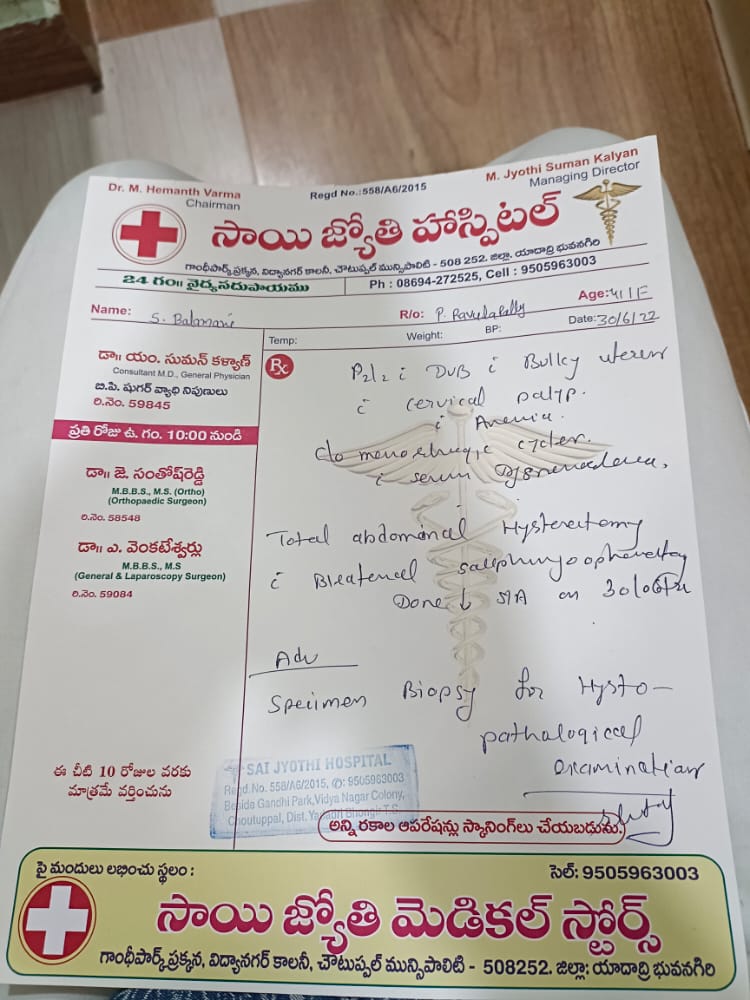 Dr. M. Hemanth Varma
Chairman
Regd No.:558/A6/2015
M. Jyothi Suman Kalyan
Managing Director
సాయి జ్యోతి హాస్పిటల్
గాంధీపార్క్ ప్రక్కన, విద్యానగర్ కాలనీ, చౌటుప్పల్ మున్సిపాలిటి - 508 252. జిల్లా: యాదాద్రి భువనగిరి
24 గం॥ వైద్యసదుపాయము
Ph : 08694-272525, Cell : 9505963003
Name: S. Balamani
R/o: P.
Age: 41/F
Temp:
Weight:
BP:
Date: 30/6/22
డా॥ యం. సుమన్ కళ్యాణ్
Consultant M.D., General Physician
బి.పి. షుగర్ వ్యాధి నిపుణులు
రి.నెం. 59845
ప్రతి రోజు ఉ. గం. 10:00 నుండి
డా॥ జె. సంతోష్‌రెడ్డి
M.B.B.S., M.S. (Ortho)
(Orthopaedic Surgeon)
రి.నెం. 58548
డా॥ ఎ. వెంకటేశ్వర్లు
M.B.B.S., M.S
(General & Laparoscopy Surgeon)
రి.నెం. 59084
ఈ చీటి 10 రోజుల వరకు
మాత్రమే వర్తించును
Rx
P2L2 c̄ DUB c̄ Bulky uterus
c̄ cervical polyp.
c̄ Anemia.
c/o cycles.
c̄
Total abdominal Hysterectomy
c̄
Done ↓ S/A on 30/06/22
Adv
Specimen Biopsy for Hysto-
pathological
examination
SAI JYOTHI HOSPITAL
Regd. No. 558/A6/2015, ✆: 9505963003
Beside Gandhi Park, Vidya Nagar Colony,
Choutuppal, Dist. Yadadri Bhongir T.S.
అన్ని రకాల ఆపరేషన్లు స్కానింగ్‌లు చేయబడును.
పై మందులు లభించు స్థలం :
సెల్: 9505963003
సాయి జ్యోతి మెడికల్ స్టోర్స్
గాంధీపార్క్ ప్రక్కన, విద్యానగర్ కాలనీ, చౌటుప్పల్ మున్సిపాలిటి - 508252. జిల్లా: యాదాద్రి భువనగిరి